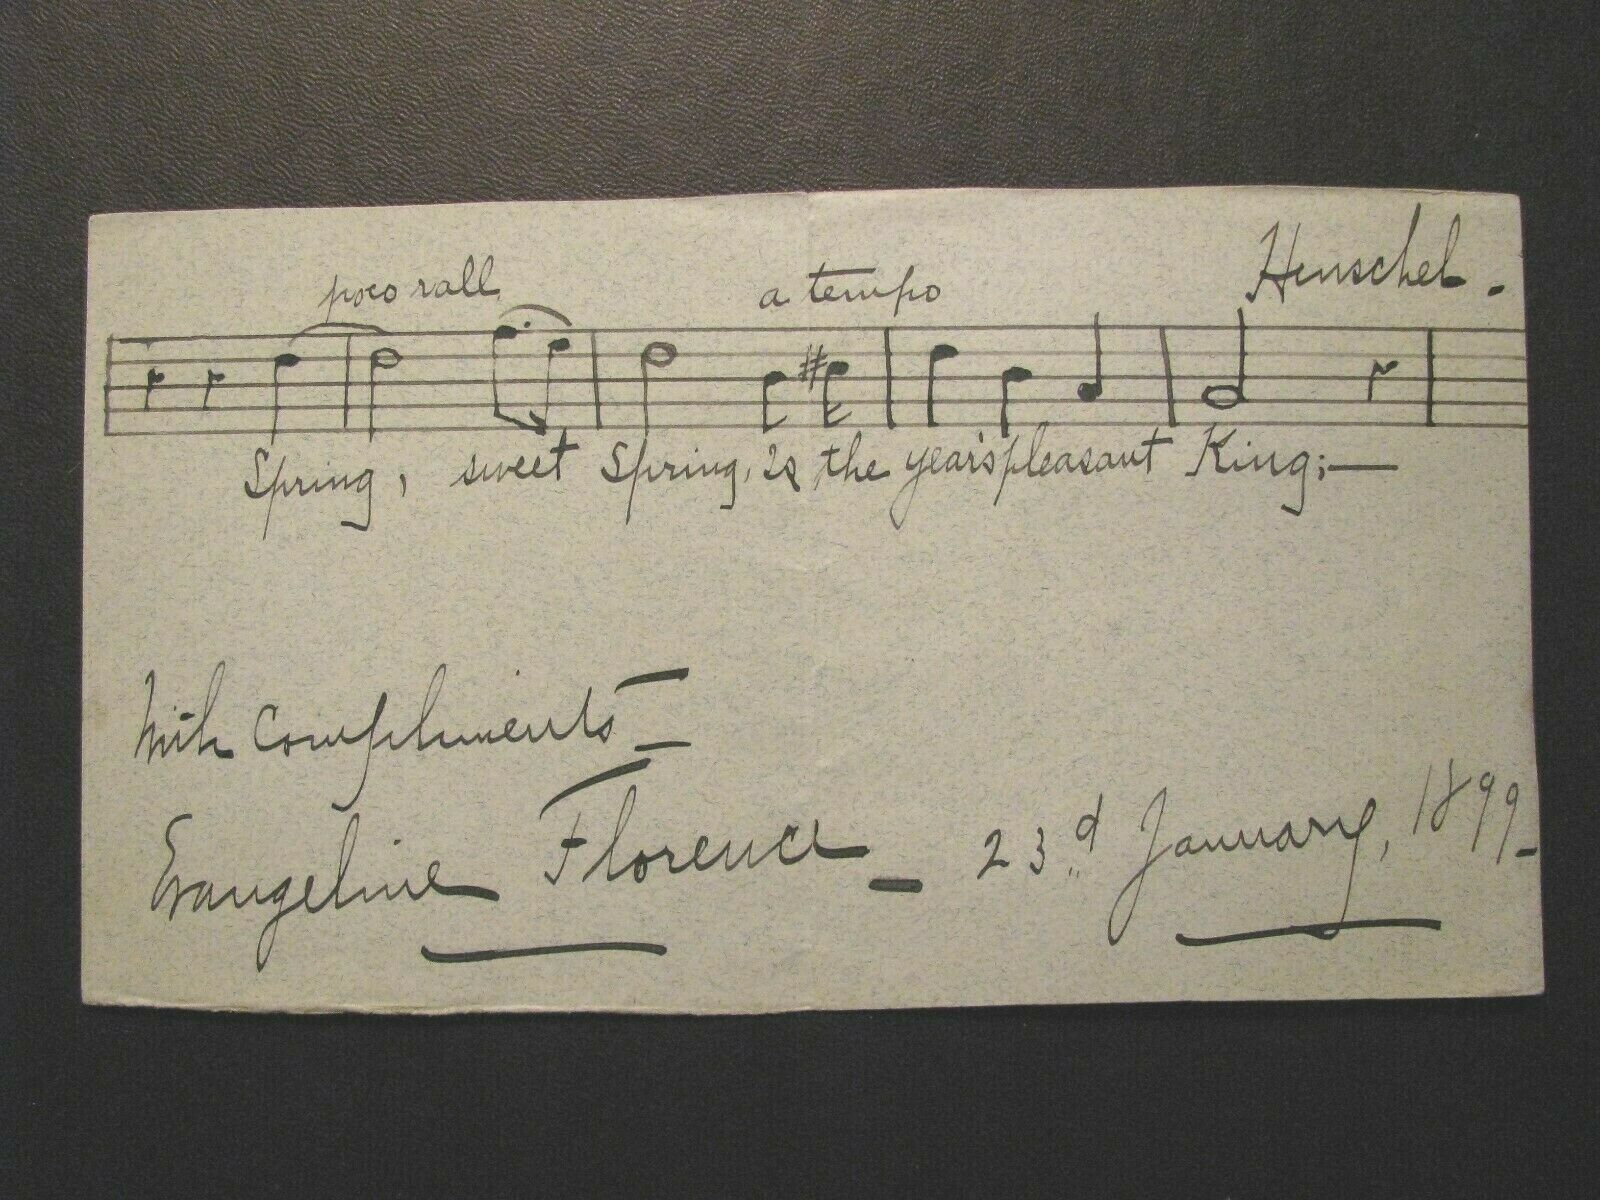 Henschel.
poco rall. a tempo
Spring, sweet Spring, is the year's pleasant King;—
With Compliments—
Evangeline Florence— 23rd January, 1899—